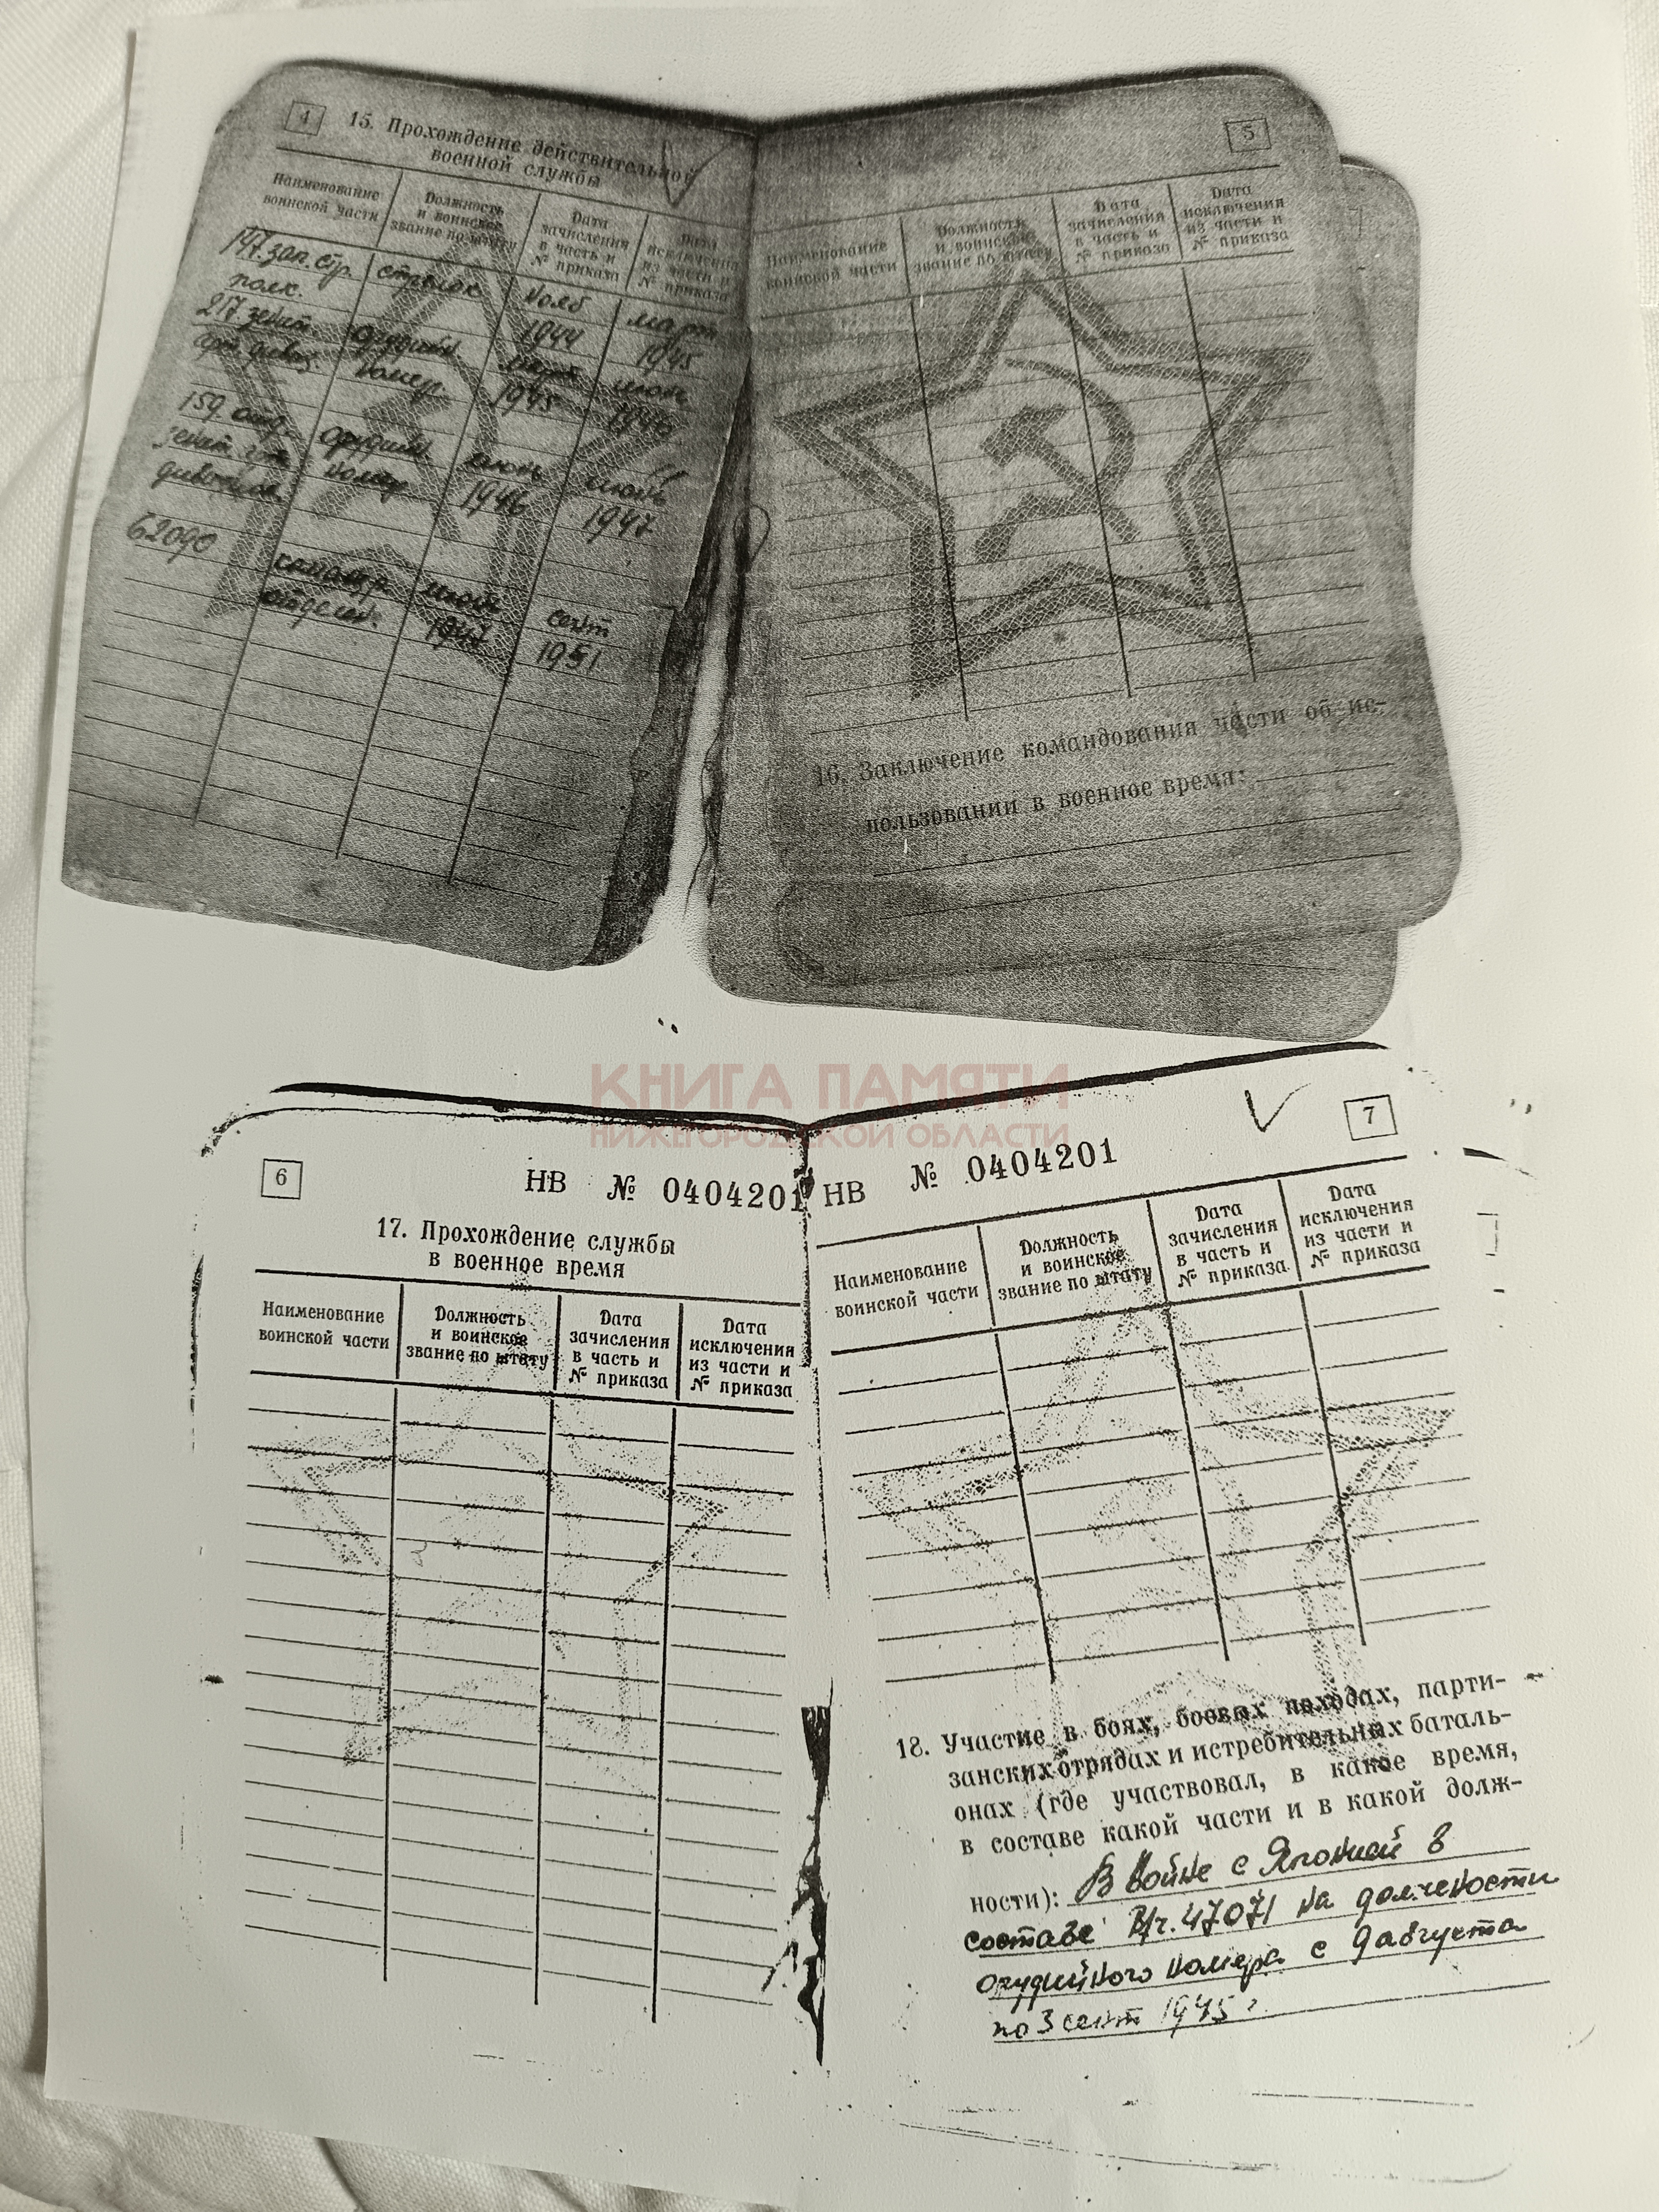 4
15. Прохождение действительной
военной службы
Наименование
воинской части
Должность
и воинское
звание по штату
Дата
зачисления
в часть и
№ приказа
Дата
исключения
из части и
№ приказа
147 зап. стр.
полк.
стрелок
нояб
1944
март
1945
217 зенит.
арт. дивиз.
орудийн
номер.
март
1945
июнь
1946
159 отд.
зенит. арт.
дивизион
орудийн.
номер
июнь
1946
июль
1947
62090
командр.
отделен.
июль
1947
сент
1951
5
Наименование
воинской части
Должность
и воинское
звание по штату
Дата
зачисления
в часть и
№ приказа
Дата
исключения
из части и
№ приказа
16. Заключение командования части об ис-
пользовании в военное время:
КНИГА ПАМЯТИ
НИЖЕГОРОДСКОЙ ОБЛАСТИ
6
НВ № 0404201
17. Прохождение службы
в военное время
Наименование
воинской части
Должность
и воинское
звание по штату
Дата
зачисления
в часть и
№ приказа
Дата
исключения
из части и
№ приказа
7
НВ № 0404201
Наименование
воинской части
Должность
и воинское
звание по штату
Дата
зачисления
в часть и
№ приказа
Дата
исключения
из части и
№ приказа
18. Участие в боях, боевых походах, парти-
занских отрядах и истребительных баталь-
онах (где участвовал, в какое время,
в составе какой части и в какой долж-
ности): В войне с Японией в
составе В/ч. 47071 на должности
орудийного номера с 9 августа
по 3 сент 1945 г.